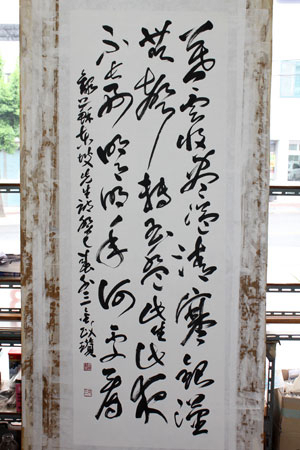 暮雲收盡溢清寒銀漢
無聲轉玉盤此生此夜
不長好明月明年何處看
錄蘇東坡先生詩癸巳春